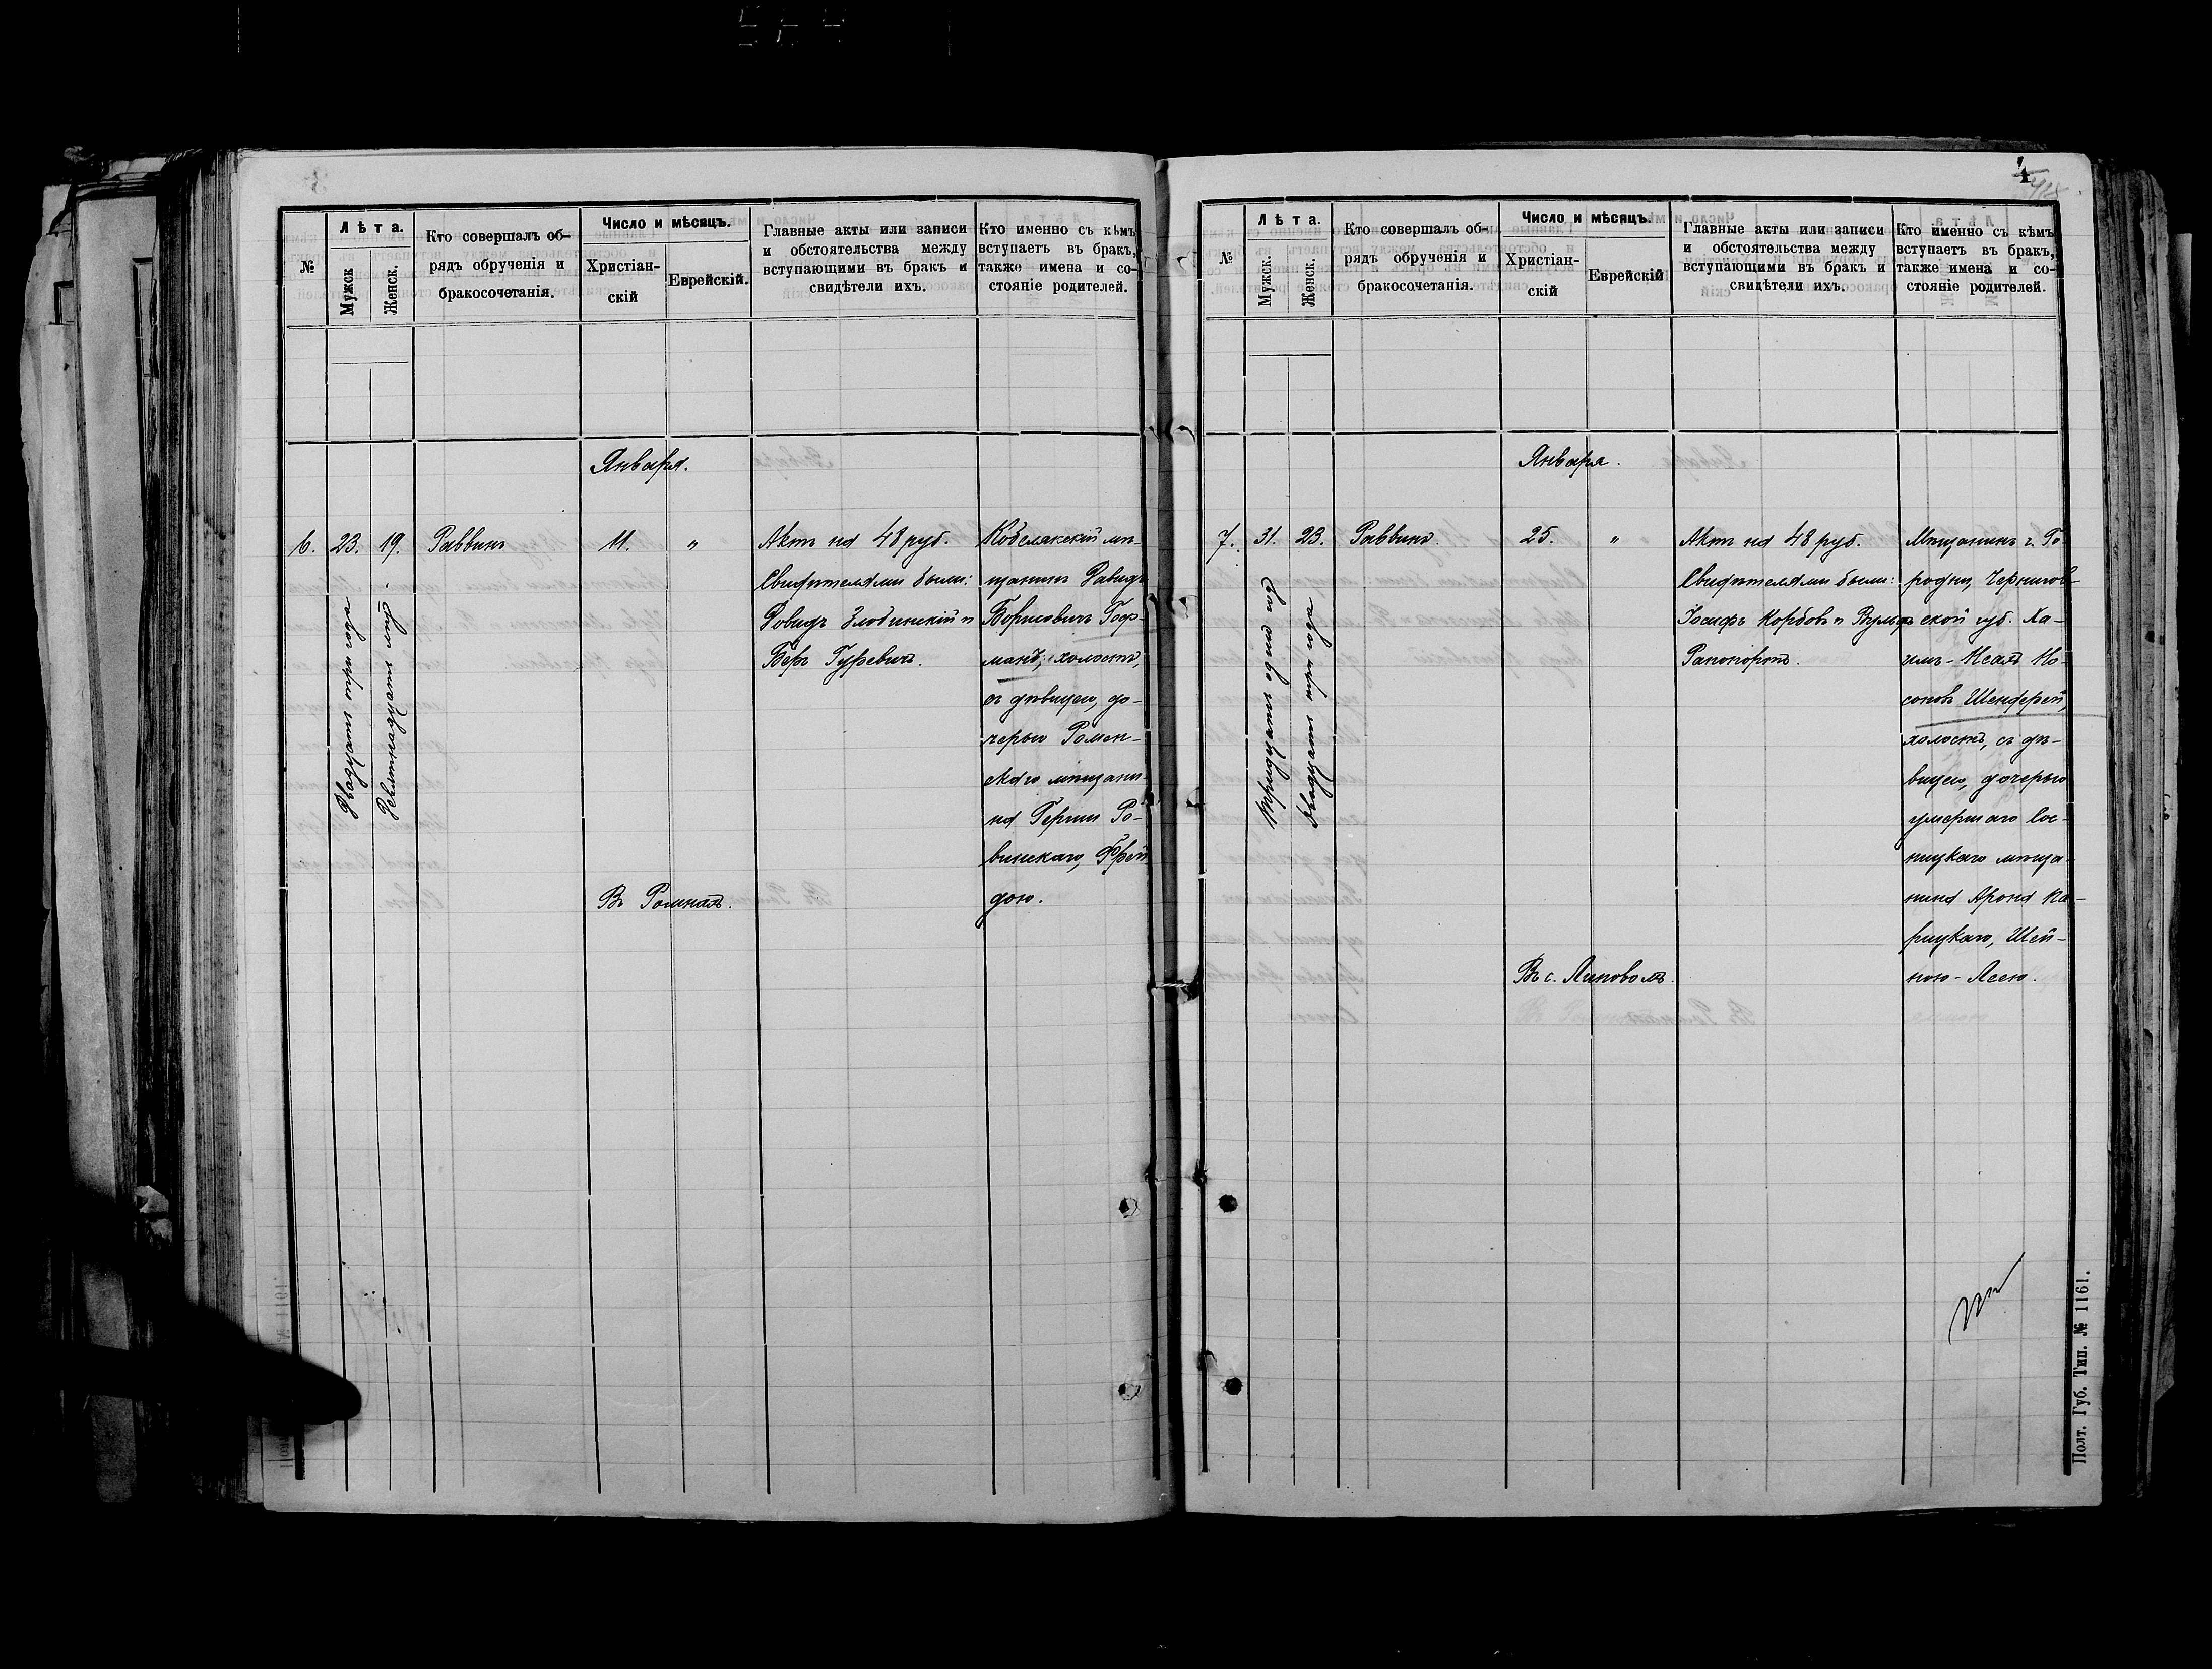 №
Лѣта.
Мужск
Женск.
Кто совершалъ об-
рядъ обрученія и
бракосочетанія.
Число и мѣсяцъ.
Христіан-
скій
Еврейскій.
Главные акты или записи
и обстоятельства между
вступающими въ бракъ и
свидѣтели ихъ.
Кто именно съ кѣмъ
вступаетъ въ бракъ,
также имена и со-
стояніе родителей.
Января.
6. 23. 19. Раввинъ 11. "
Двадцать три года
Девятнадцать лѣтъ
Актъ на 48 руб.
Свидѣтелями были:
Довидъ Злотинскій и
Беръ Гуревичъ.
Кобелякскій мѣ-
щанинъ Давидъ
Борисовичъ Гоф-
манъ, холостъ,
съ дѣвицею, до-
черью Ромен-
скаго мѣщани-
на Герши Ро-
винскаго, Фрей-
дою.
Въ Ромнахъ.
4
№
Лѣта.
Мужск.
Женск.
Кто совершалъ об-
рядъ обрученія и
бракосочетанія.
Число и мѣсяцъ.
Христіан-
скій
Еврейскій
Главные акты или записи
и обстоятельства между
вступающими въ бракъ и
свидѣтели ихъ.
Кто именно съ кѣмъ
вступаетъ въ бракъ,
также имена и со-
стояніе родителей.
Января.
7. 31. 23. Раввинъ. 25. "
Тридцать одинъ годъ
Двадцать три года
Актъ на 48 руб.
Свидѣтелями были:
Іосифъ Корбовъ и Вульфъ
Рапопортъ.
Мѣщанинъ г. Го-
родни, Чернигов-
ской губ. Ха-
имъ-Исаія Но-
соновъ Шендерей,
холостъ, съ дѣ-
вицею, дочерью
умершаго Сос-
ницкаго мѣща-
нина Арона Ка-
рицкаго, Шей-
ною-Лесею.
Въ с. Липовомъ.
Полт. Губ. Тип. № 1161.